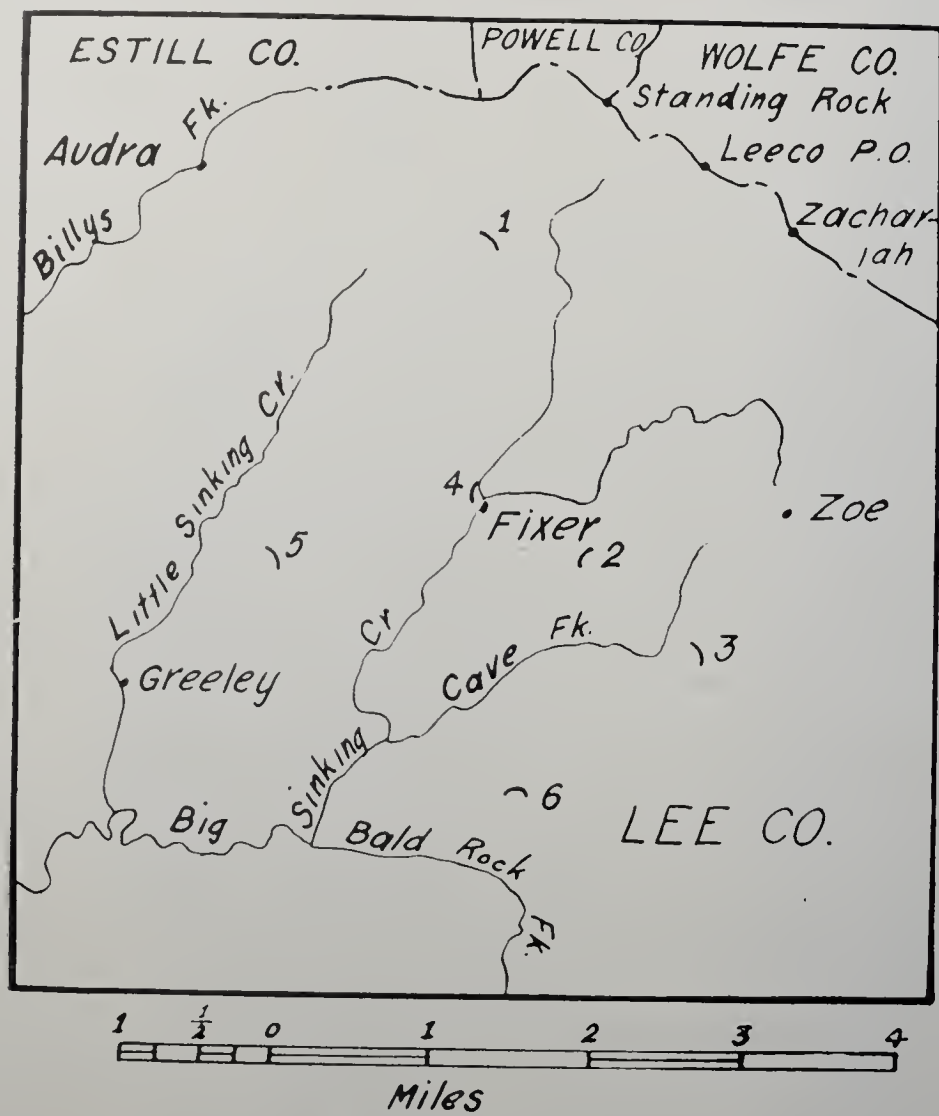 ESTILL CO.
POWELL CO
WOLFE CO.
Standing Rock
Leeco P.O.
Zachar-
iah
Audra
Billys Fk.
1
Little Sinking Cr.
4
Fixer
Zoe
5
2
3
Cave Fk.
Greeley
Big Sinking Cr
6
LEE CO.
Bald Rock Fk.
1 1/2 0 1 2 3 4
Miles